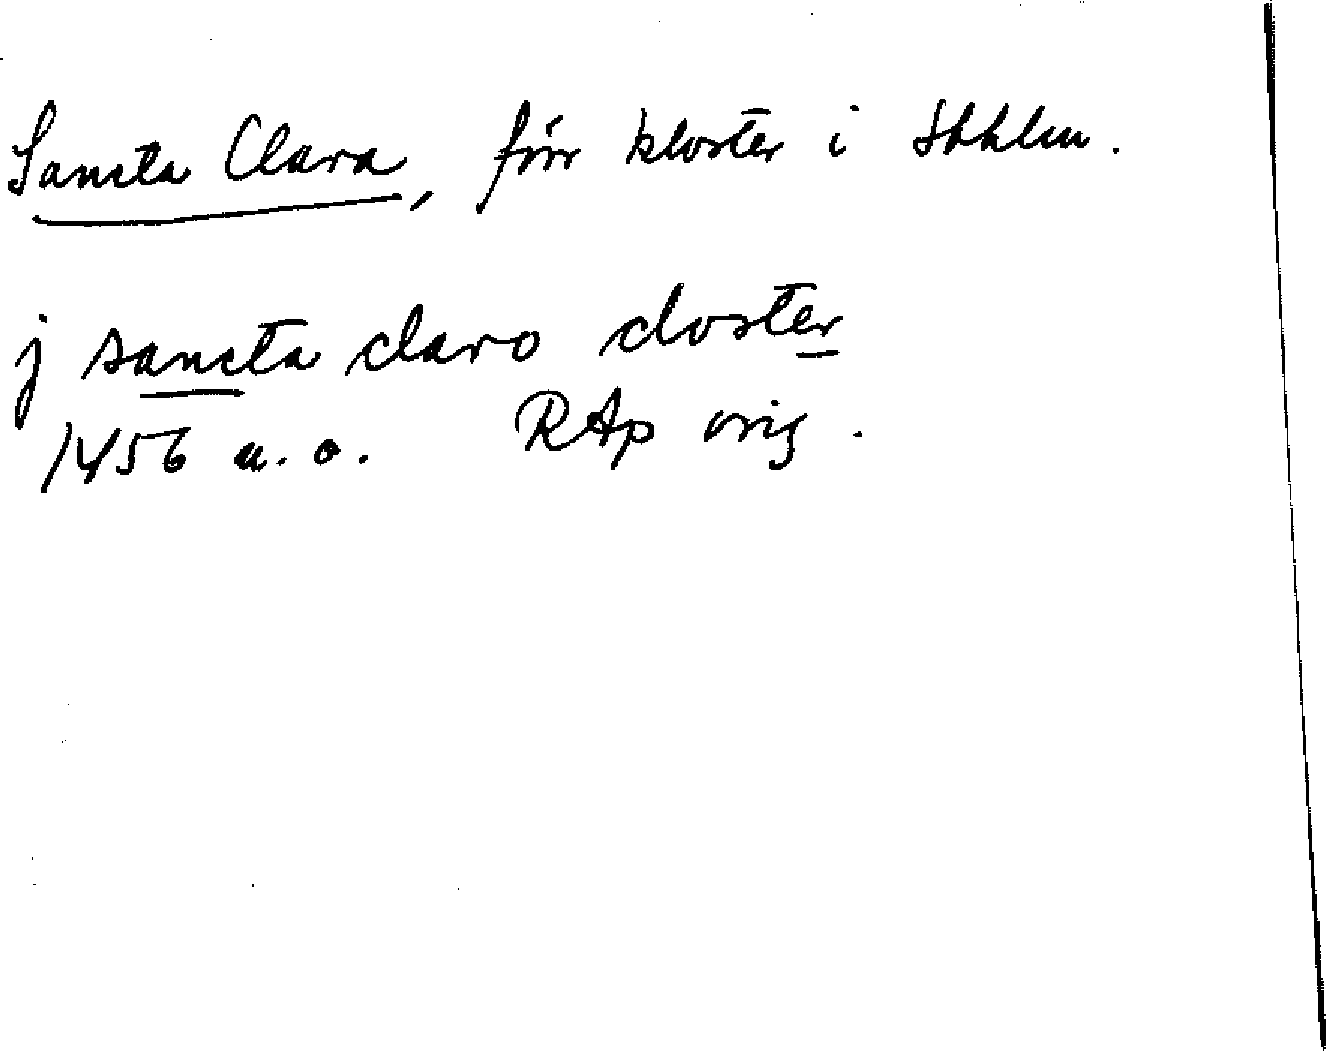 Sancta Clara, förr kloster i Sthlm.
j sancta claro closter
1456 u.o. RAp orig.